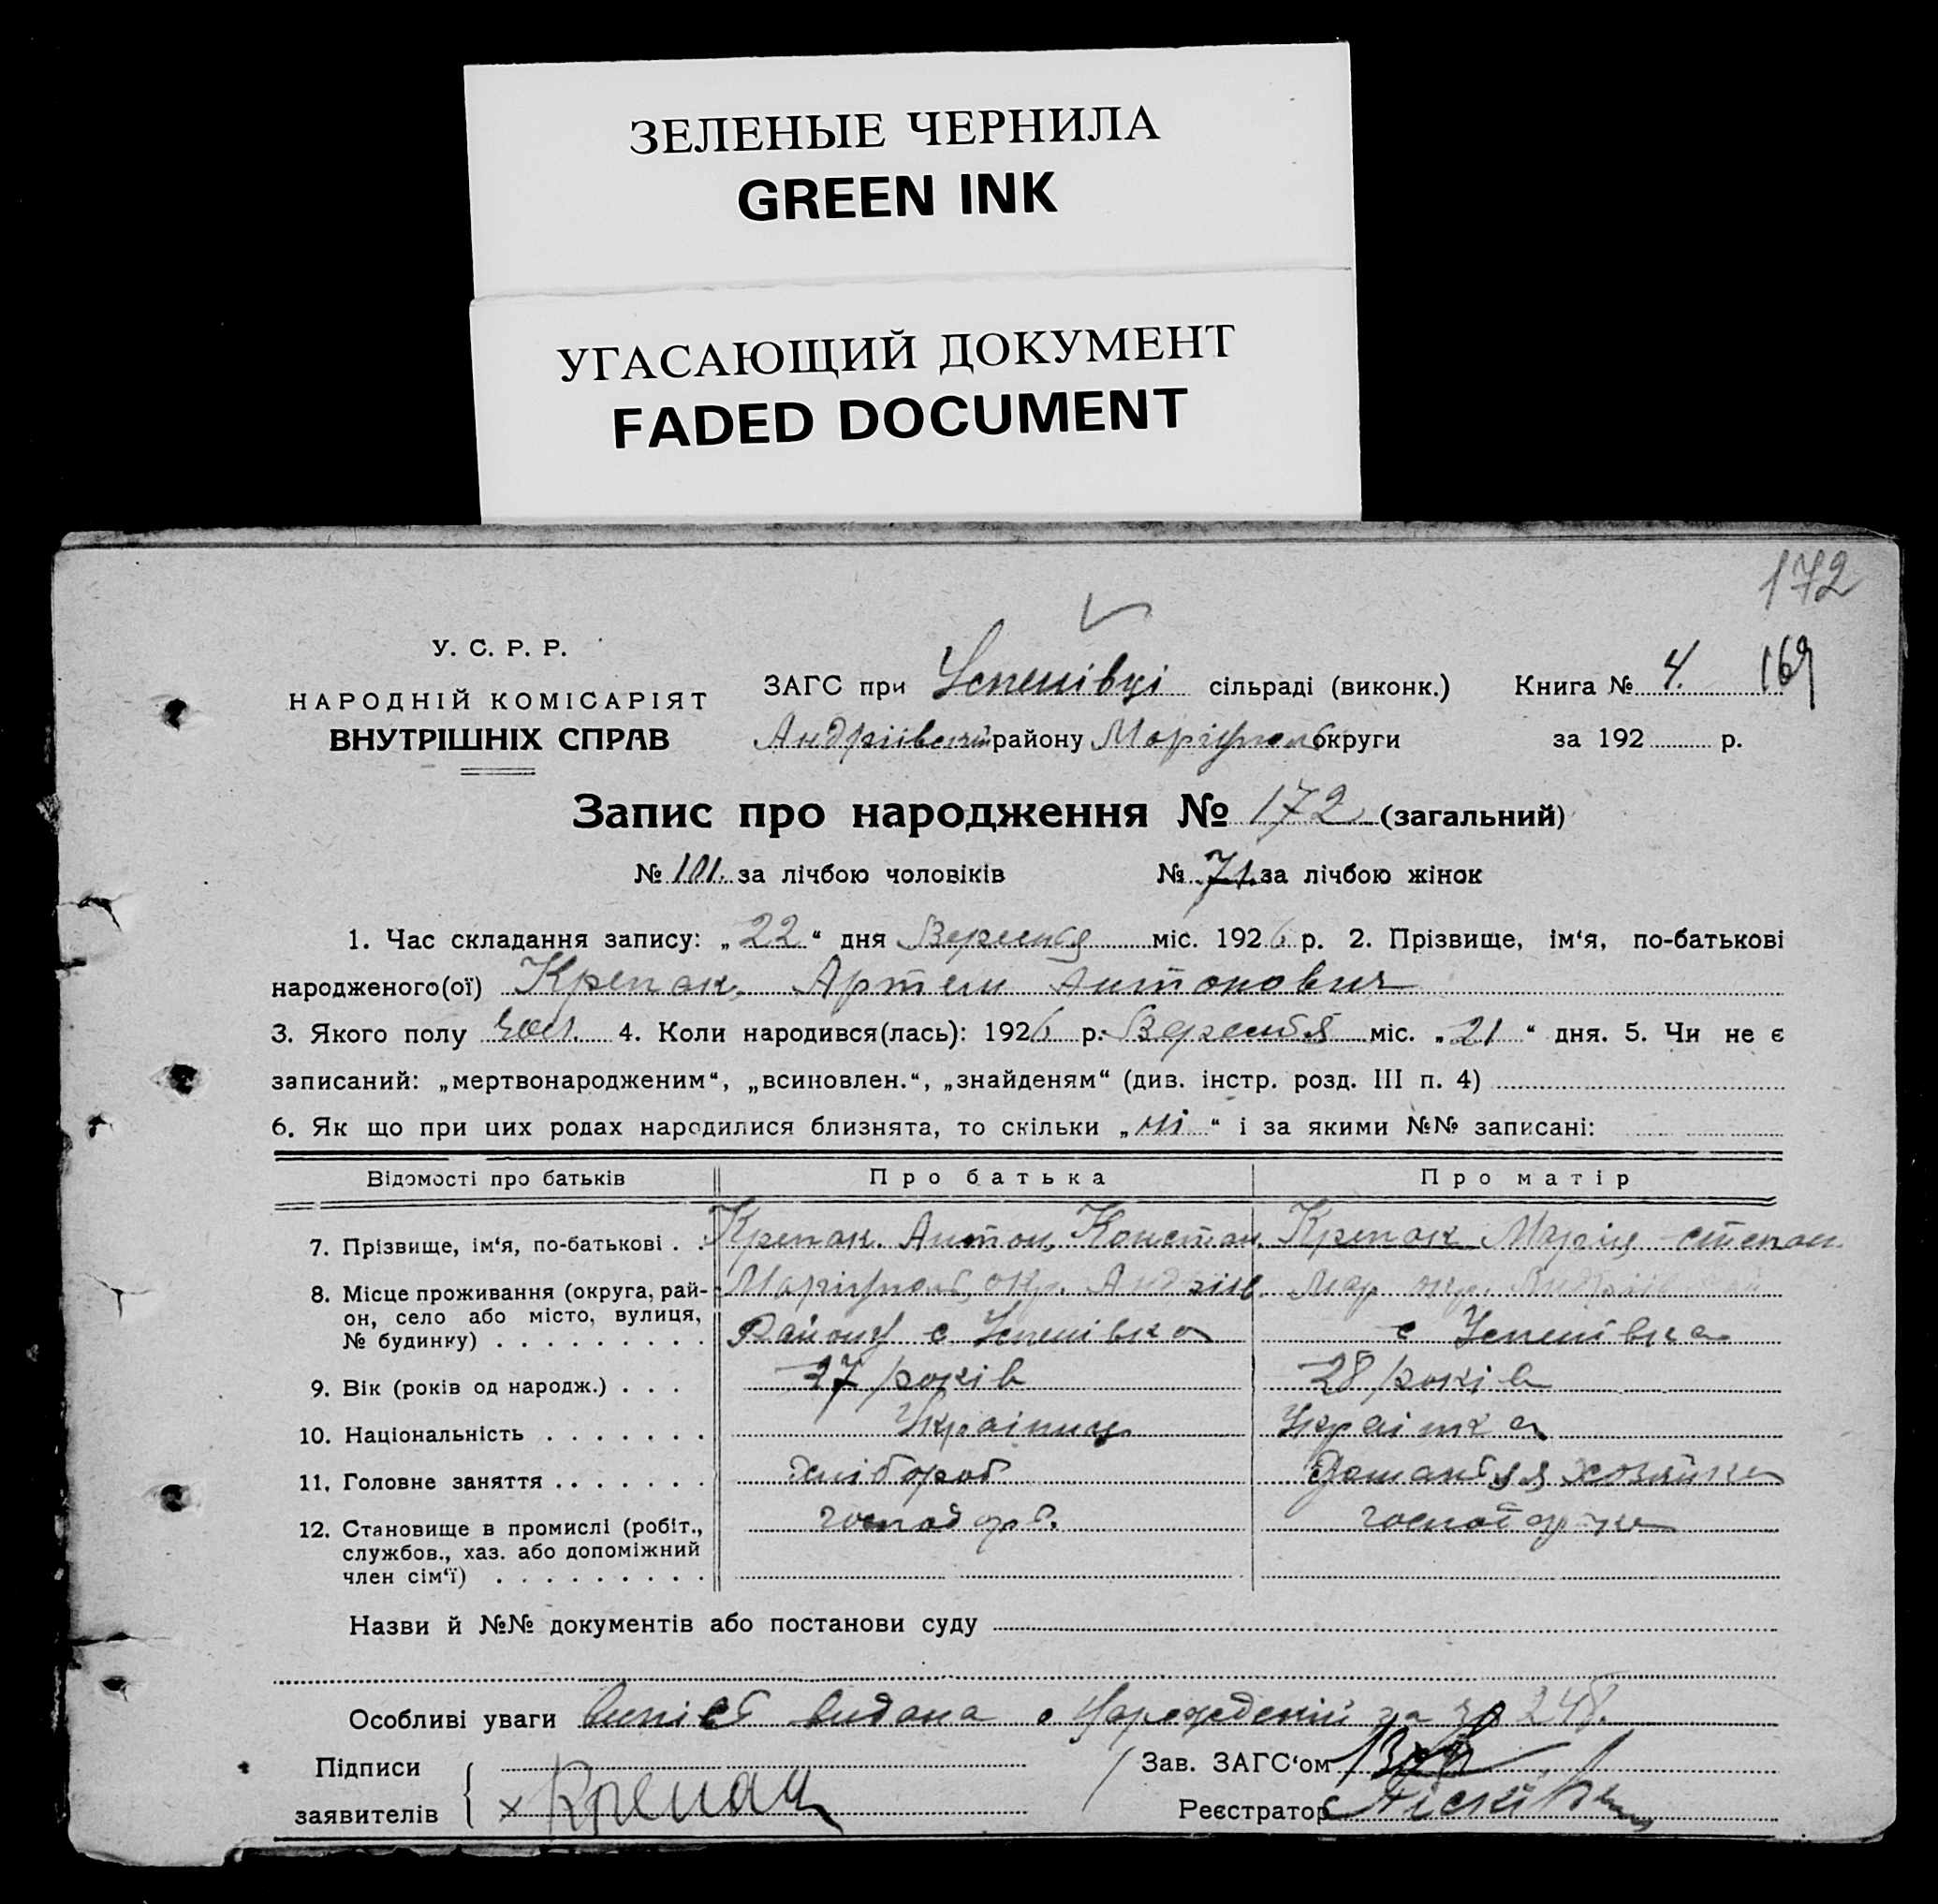 ЗЕЛЕНЫЕ ЧЕРНИЛА
GREEN INK
УГАСАЮЩИЙ ДОКУМЕНТ
FADED DOCUMENT
172
У. С. Р. Р.
НАРОДНІЙ КОМІСАРІЯТ
ВНУТРІШНІХ СПРАВ
ЗАГС при Успенівці сільраді (виконк.) Книга № 4. 169
Андріівськ району Маріупол округи за 192 р.
Запис про народження № 172 (загальний)
№ 101. за лічбою чоловіків № 71. за лічбою жінок
1. Час складання запису: „22“ дня Вересня міс. 1926 р. 2. Прізвище, ім‘я, по-батькові
народженого(ої) Крепак Артем Антонович
3. Якого полу чол. 4. Коли народився(лась): 1926 р. Вересня міс. „21“ дня. 5. Чи не є
записаний: „мертвонародженим“, „всиновлен.“, „знайденям“ (див. інстр. розд. III п. 4)
6. Як що при цих родах народилися близнята, то скільки „ні“ і за якими №№ записані:
Відомості про батьків Про батька Про матір
7. Прізвище, ім‘я, по-батькові . . Крепак. Антон, Констан. Крепак Марія степан.
8. Місце проживання (округа, рай- Маріупол. окр. Андріів. Мар окр. Андріів
он, село або місто, вулиця,
№ будинку) . . . . . . . . . Району с Успенівка с Успенівка
9. Вік (років од народж.) . . . 27 років 28 років
10. Національність . . . . . . . Украінец Украінка
11. Головне заняття . . . . . . . хлібороб Домашня хозяйка
12. Становище в промислі (робіт., господар. господарка
службов., хаз. або допоміжний
член сім‘ї) . . . . . . . . .
Назви й №№ документів або постанови суду
Особливі уваги видана за № 248.
Підписи
заявителів × Крепак
Зав. ЗАГС‘ом
Реєстратор